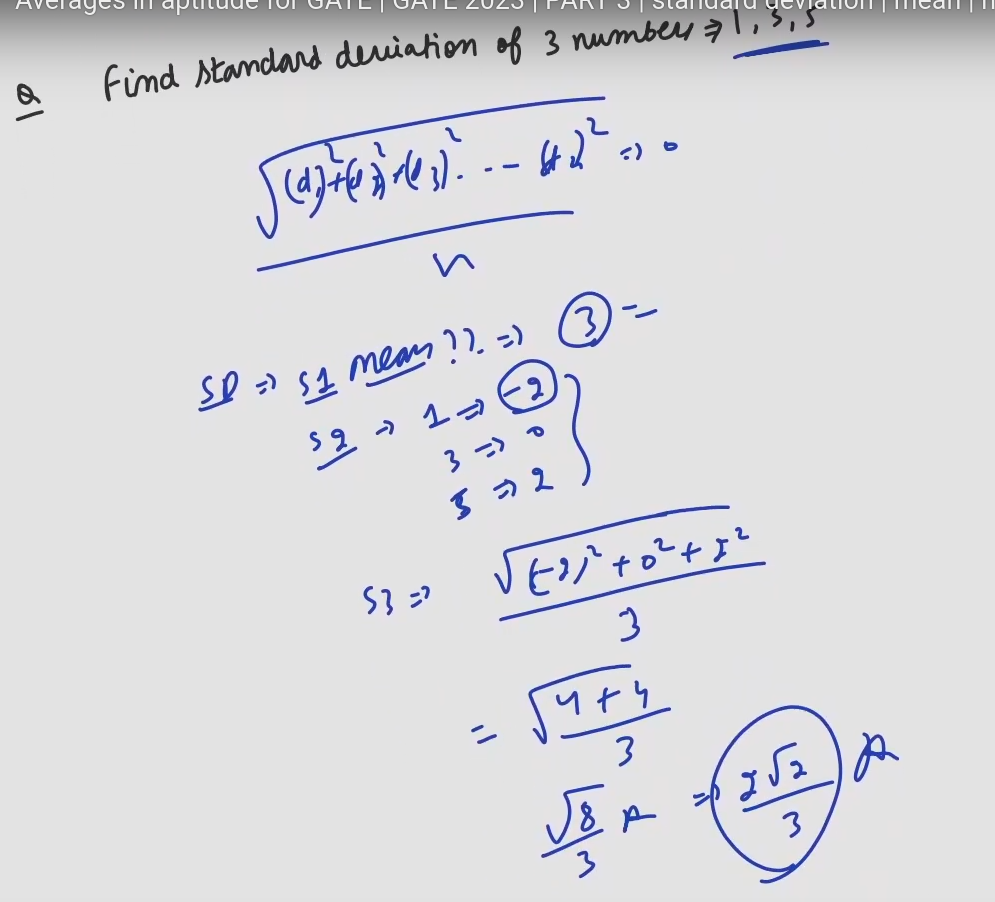 Averages in aptitude for GATE | GATE 2023 | PART 3 | standard deviation | mean |
Q Find standard deviation of 3 numbers ⇒ 1, 3, 5
√(d₁)²+(d₂)²+(d₃)². -- (dₙ)² ⇒ 0
n
SD ⇒ S1 mean??. ⇒ 3 =
S2 ⇒ 1 ⇒ -2
3 ⇒ 0
5 ⇒ 2
S3 ⇒ √(-2)² + 0² + 2²
3
= √4 + 4
3
√8 A ⇒ 2√2 A
3 3